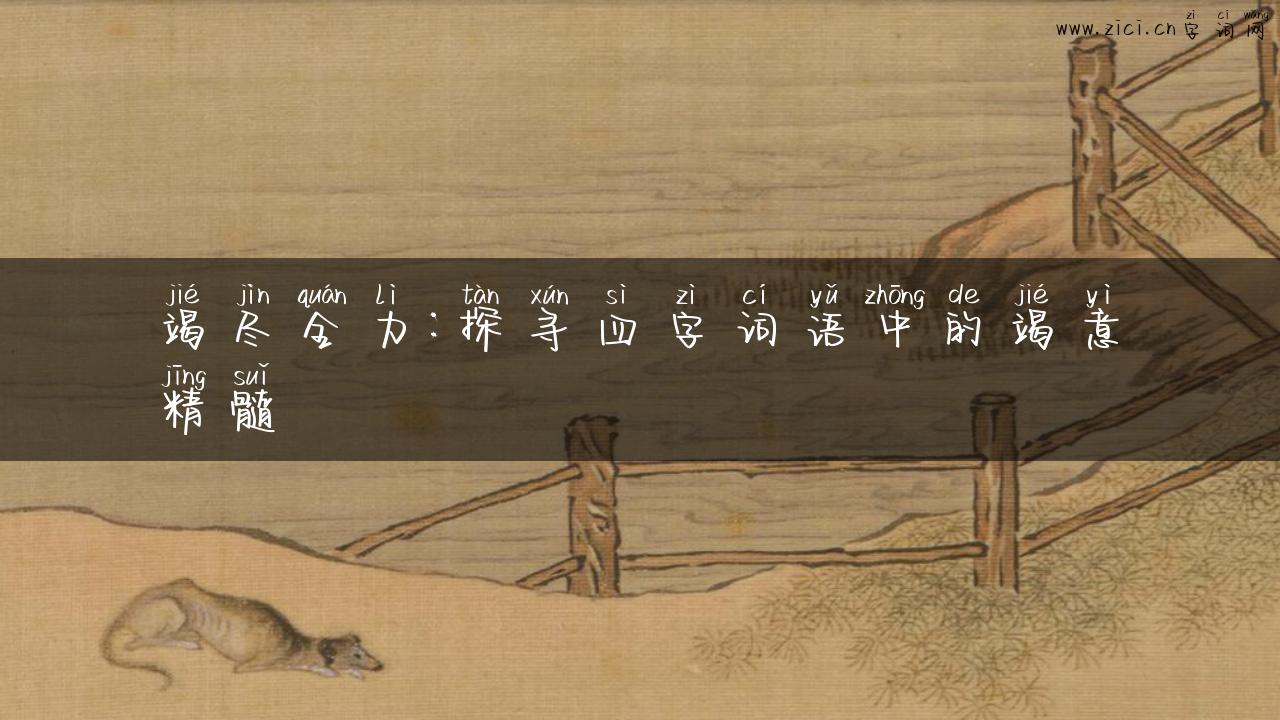 zì cí wǎng
www.zici.cn字词网
jié jìn quán lì tàn xún sì zì cí yǔ zhōng de jié yì
竭尽全力：探寻四字词语中的竭意
jīng suǐ
精髓